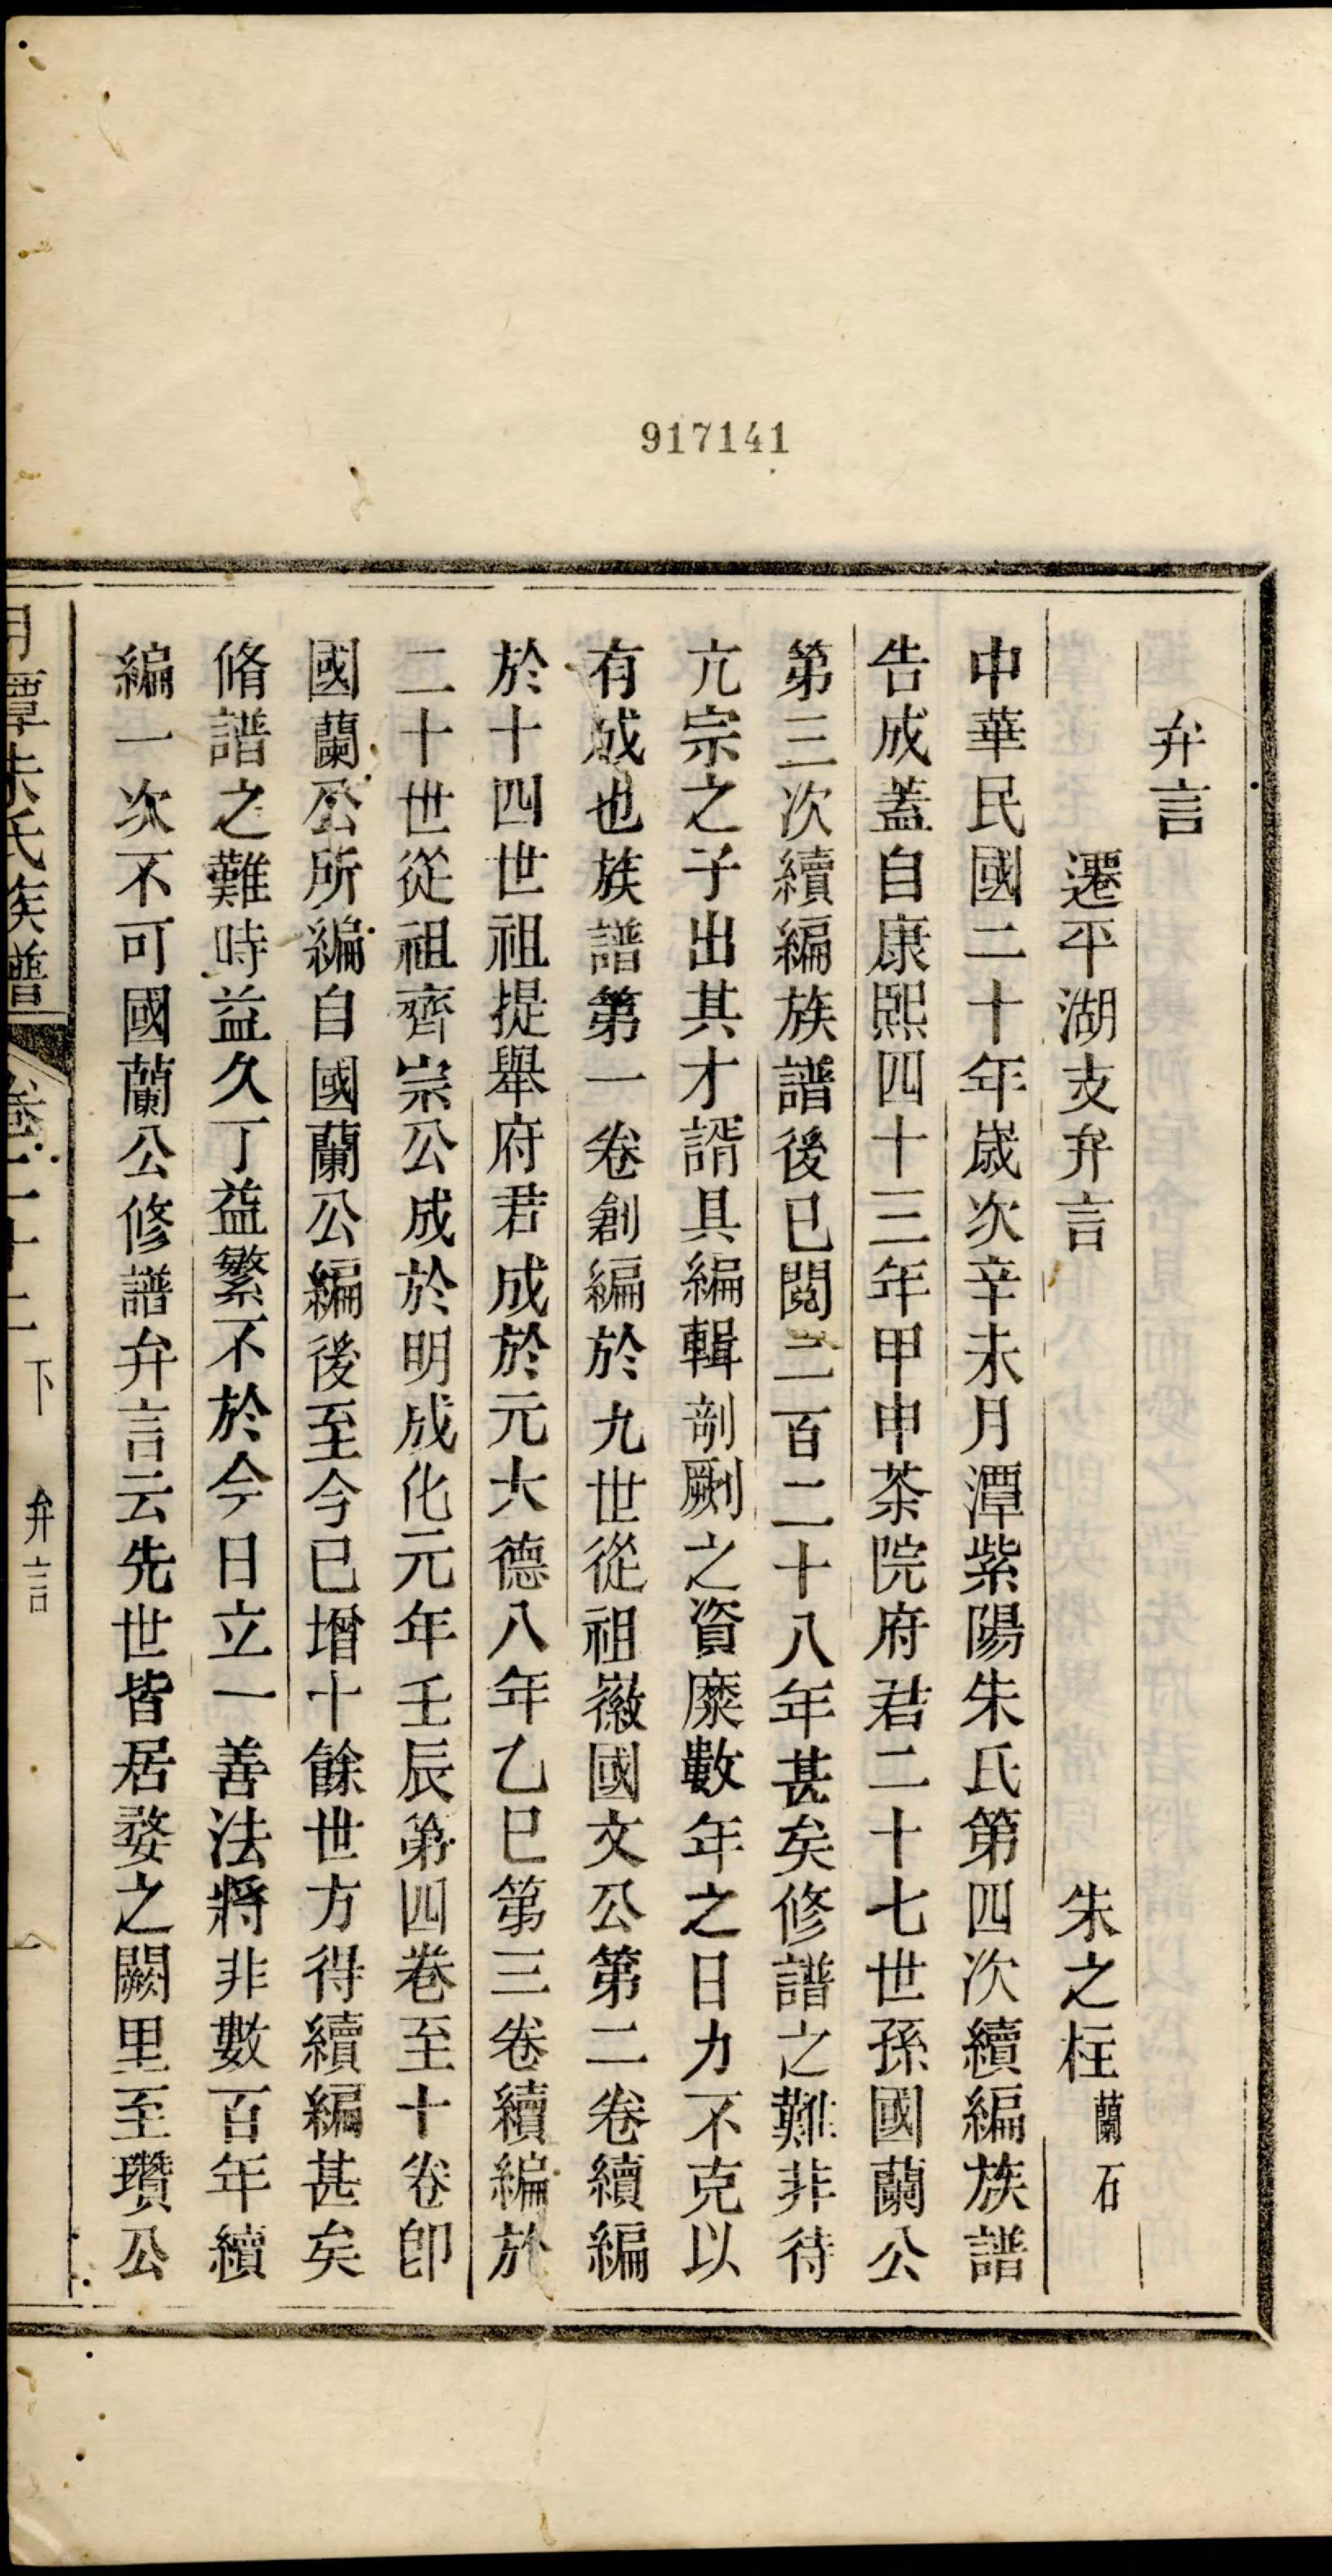 917141
弁言
遷平湖支弁言 朱之柱蘭石
中華民國二十年歲次辛未月潭紫陽朱氏第四次續編族譜
告成蓋自康熙四十三年甲申茶院府君二十七世孫國蘭公
第三次續編族譜後已閱二百二十八年甚矣修譜之難非待
亢宗之子出其才諝具編輯剞劂之資縻數年之日力不克以
有成也族譜第一卷創編於九世從祖徽國文公第二卷續編
於十四世祖提舉府君成於元大德八年乙巳第三卷續編於
二十世從祖齊崇公成於明成化元年壬辰第四卷至十卷卽
國蘭公所編自國蘭公編後至今已增十餘世方得續編甚矣
脩譜之難時益久丁益繁不於今日立一善法將非數百年續
編一次不可國蘭公修譜弁言云先世皆居婺之闕里至瓚公
月潭朱氏族譜 卷二十二下 弁言 一